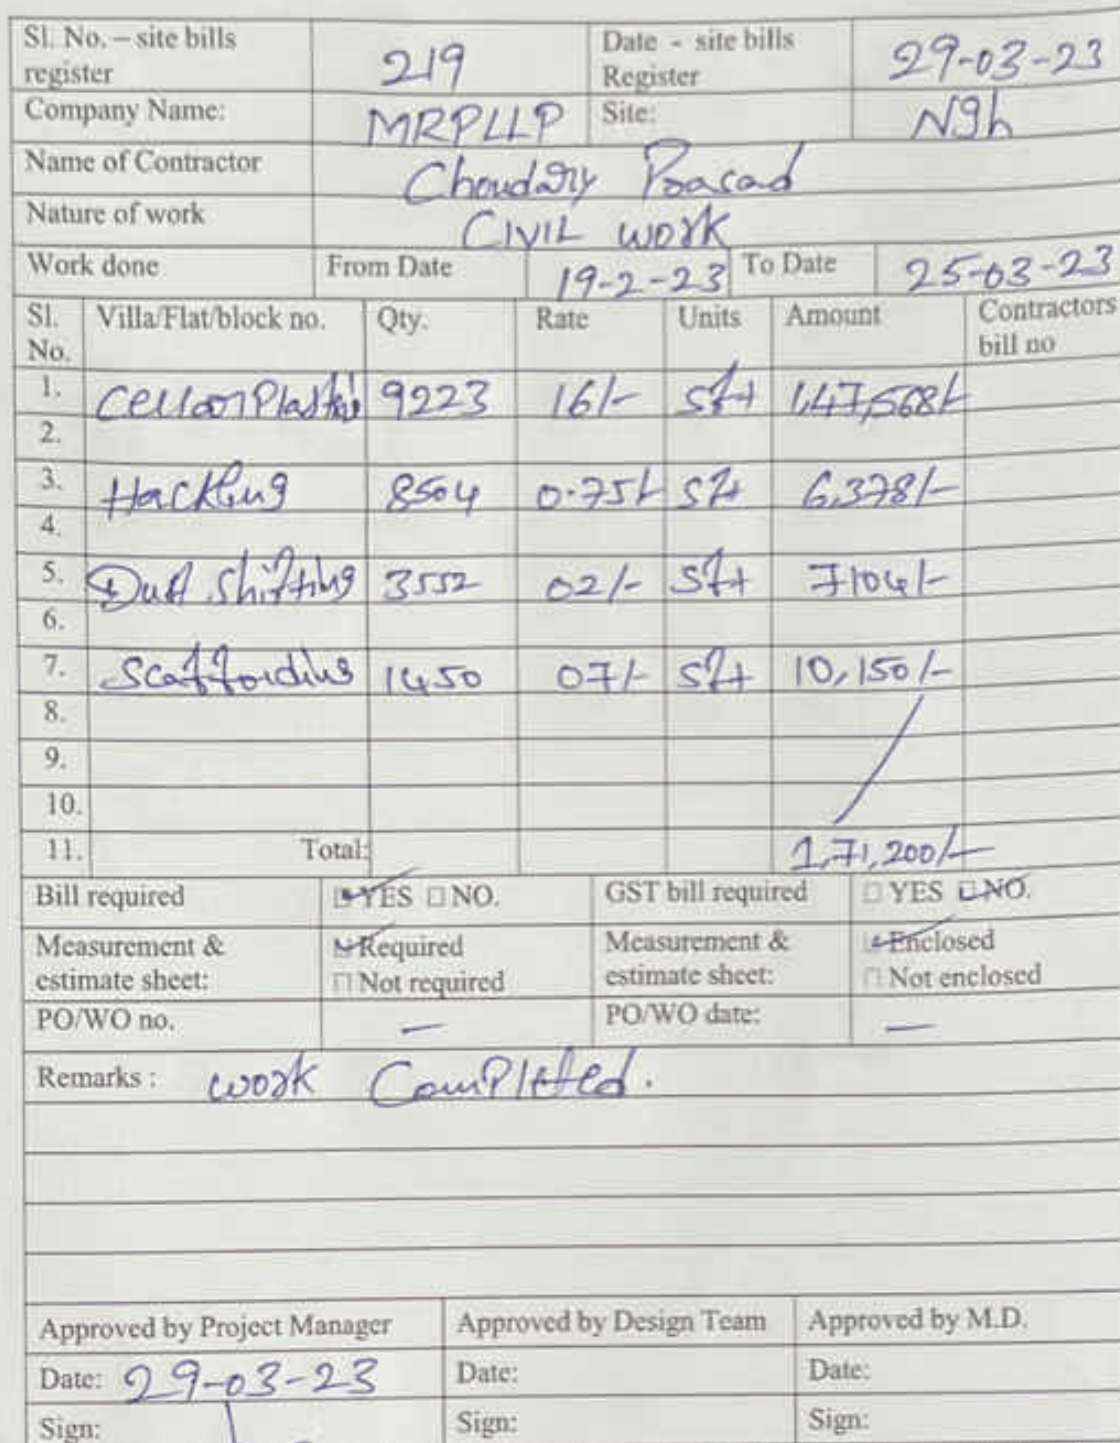 Sl. No. – site bills register 219 Date - site bills Register 29-03-23
Company Name: MRPLLP Site: Ngh
Name of Contractor Choudary Prasad
Nature of work CIVIL work
Work done From Date 19-2-23 To Date 25-03-23
Sl. No. Villa/Flat/block no. Qty. Rate Units Amount Contractors bill no
1. 9223 16/- sft 1,47,568/-
2.
3. Hackling 8504 0.75/- sft 6,378/-
4.
5. Dust shifting 3552 02/- sft 7104/-
6.
7. Scaffording 1450 07/- sft 10,150/-
8.
9.
10.
11. Total: 1,71,200/-
Bill required YES NO. GST bill required YES NO.
Measurement & estimate sheet: Required Not required Measurement & estimate sheet: Enclosed Not enclosed
PO/WO no. — PO/WO date: —
Remarks : work Completed.
Approved by Project Manager Approved by Design Team Approved by M.D.
Date: 29-03-23 Date: Date:
Sign: Sign: Sign: